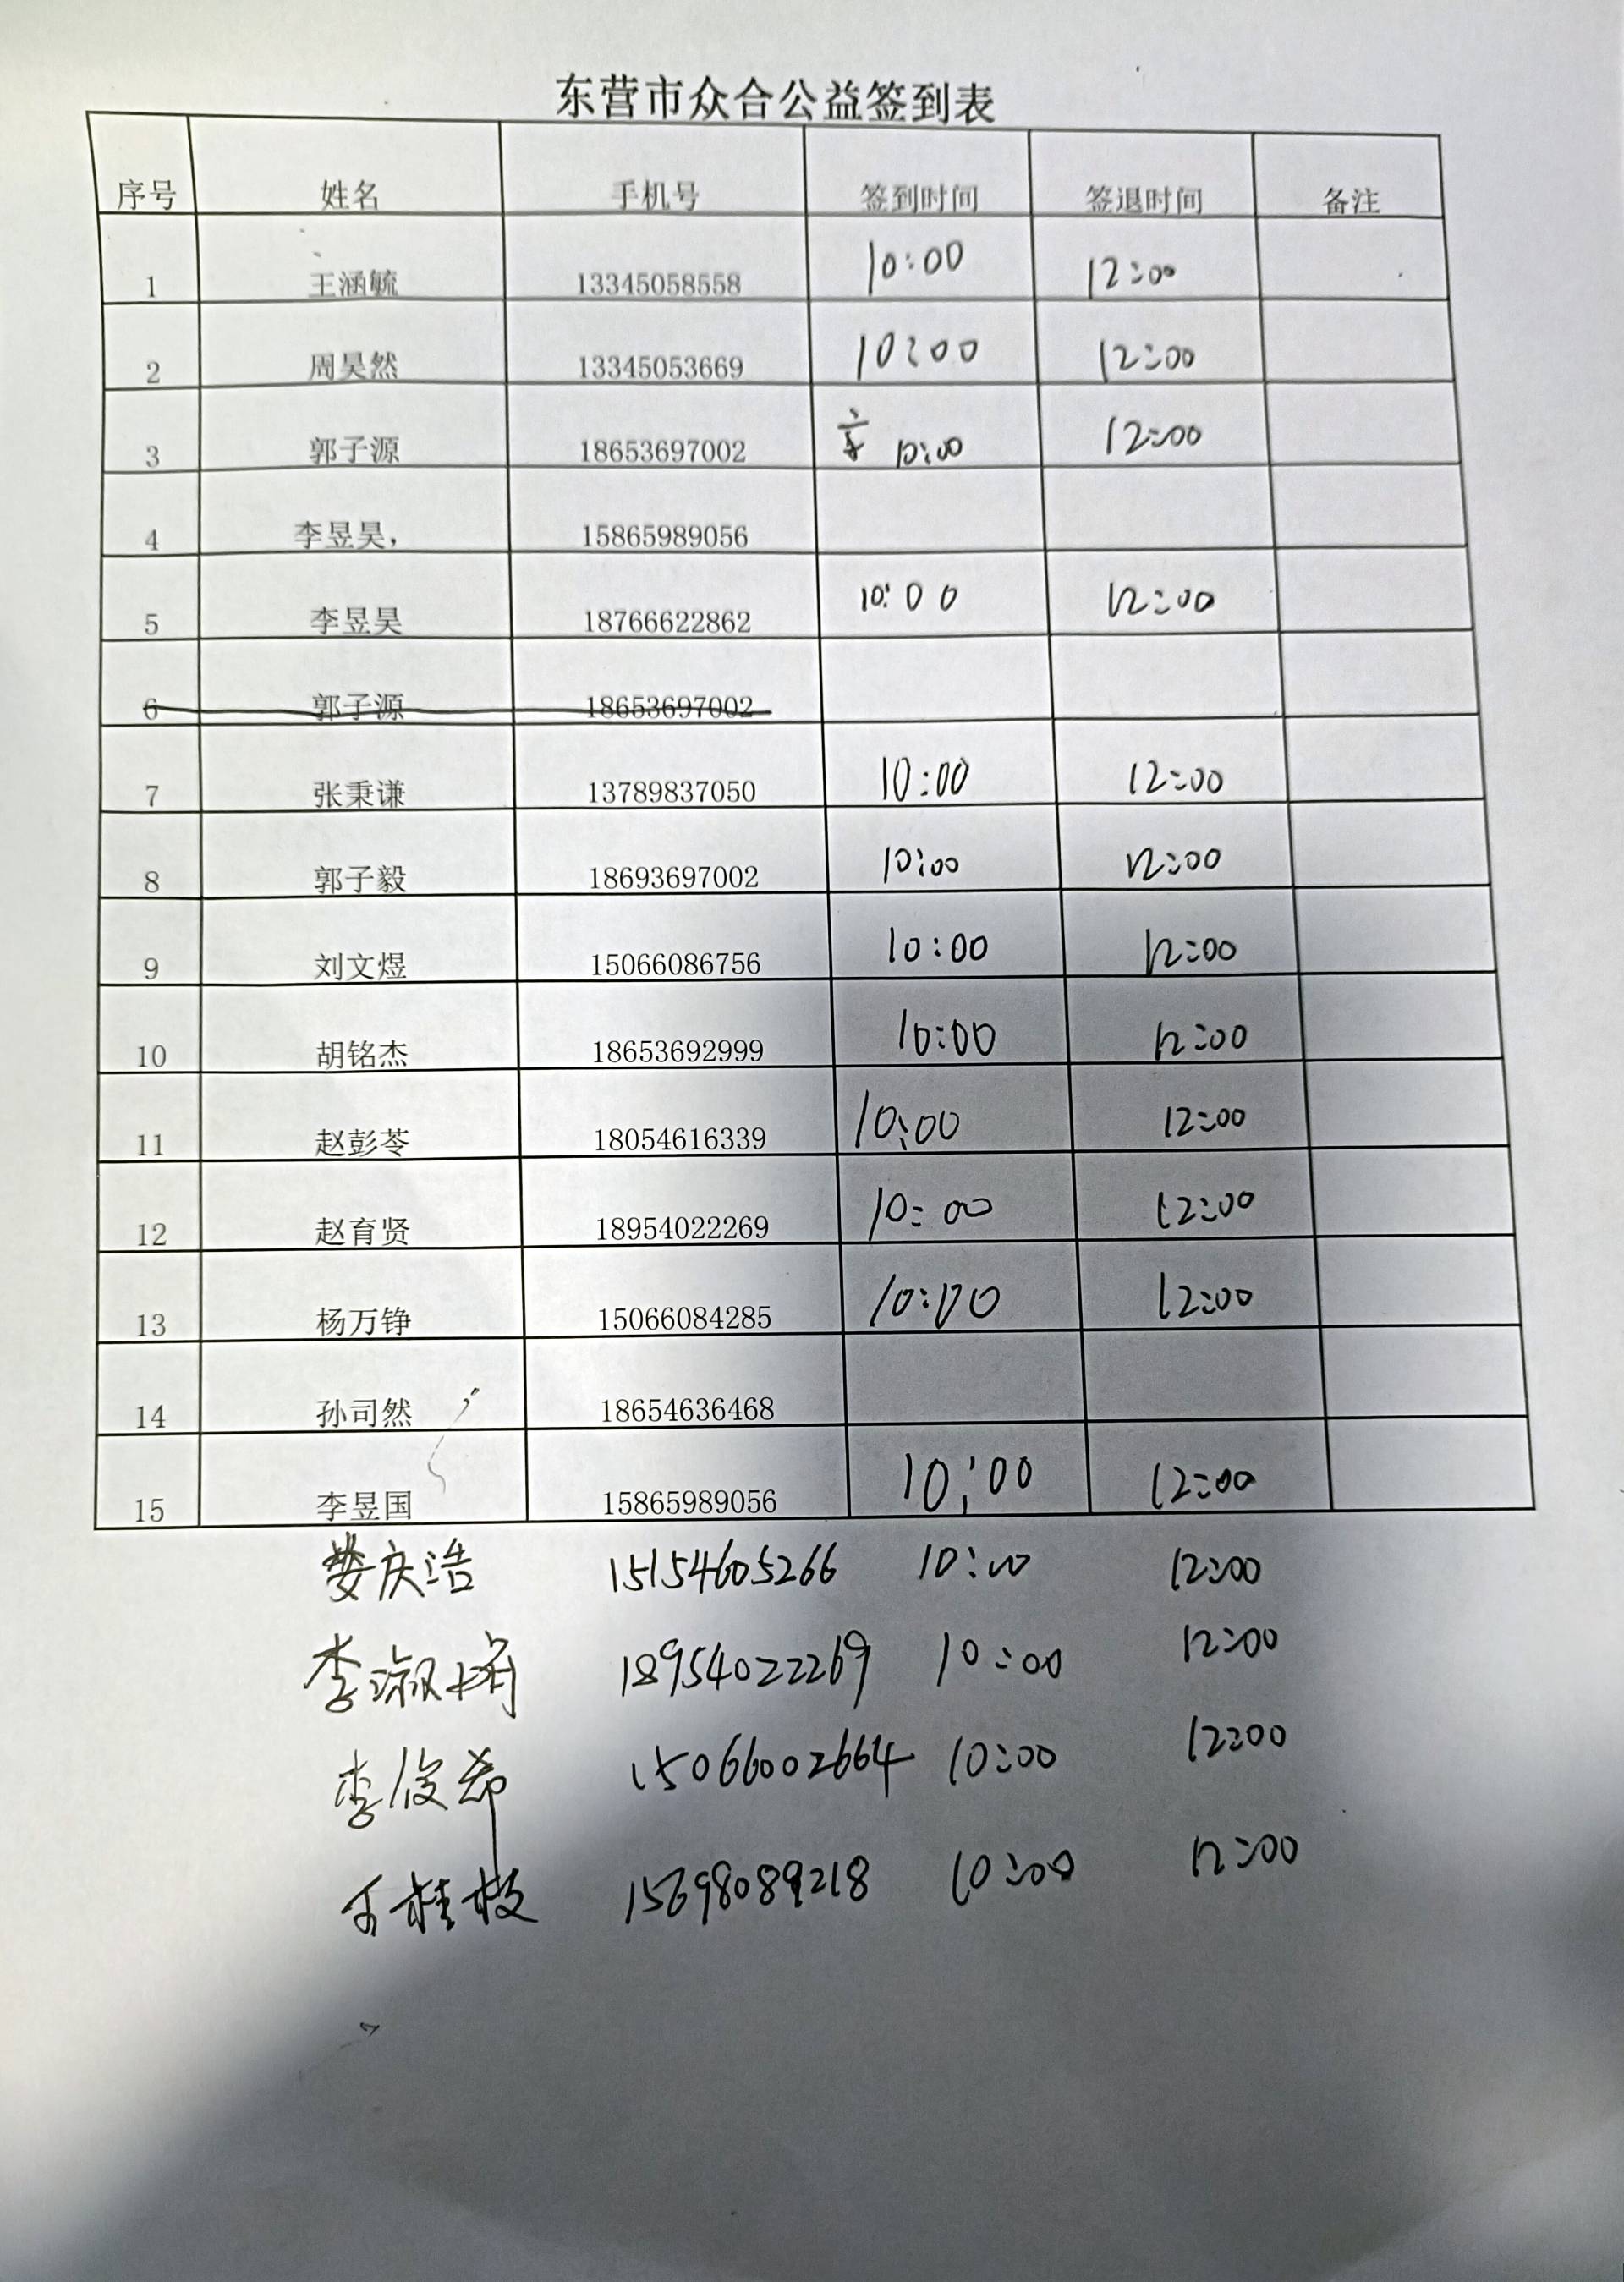 东营市众合公益签到表
序号 姓名 手机号 签到时间 签退时间 备注
1 王涵毓 13345058558 10:00 12:00
2 周昊然 13345053669 10:00 12:00
3 郭子源 18653697002 10:00 12:00
4 李昱昊， 15865989056
5 李昱昊 18766622862 10:00 12:00
6 郭子源 18653697002
7 张秉谦 13789837050 10:00 12:00
8 郭子毅 18693697002 10:00 12:00
9 刘文煜 15066086756 10:00 12:00
10 胡铭杰 18653692999 10:00 12:00
11 赵彭苓 18054616339 10:00 12:00
12 赵育贤 18954022269 10:00 12:00
13 杨万铮 15066084285 10:00 12:00
14 孙司然 18654636468
15 李昱国 15865989056 10:00 12:00
娄庆浩 15154605266 10:00 12:00
李淑 18954022269 10:00 12:00
李俊希 15066002664 10:00 12:00
桂枝 10:00 12:00